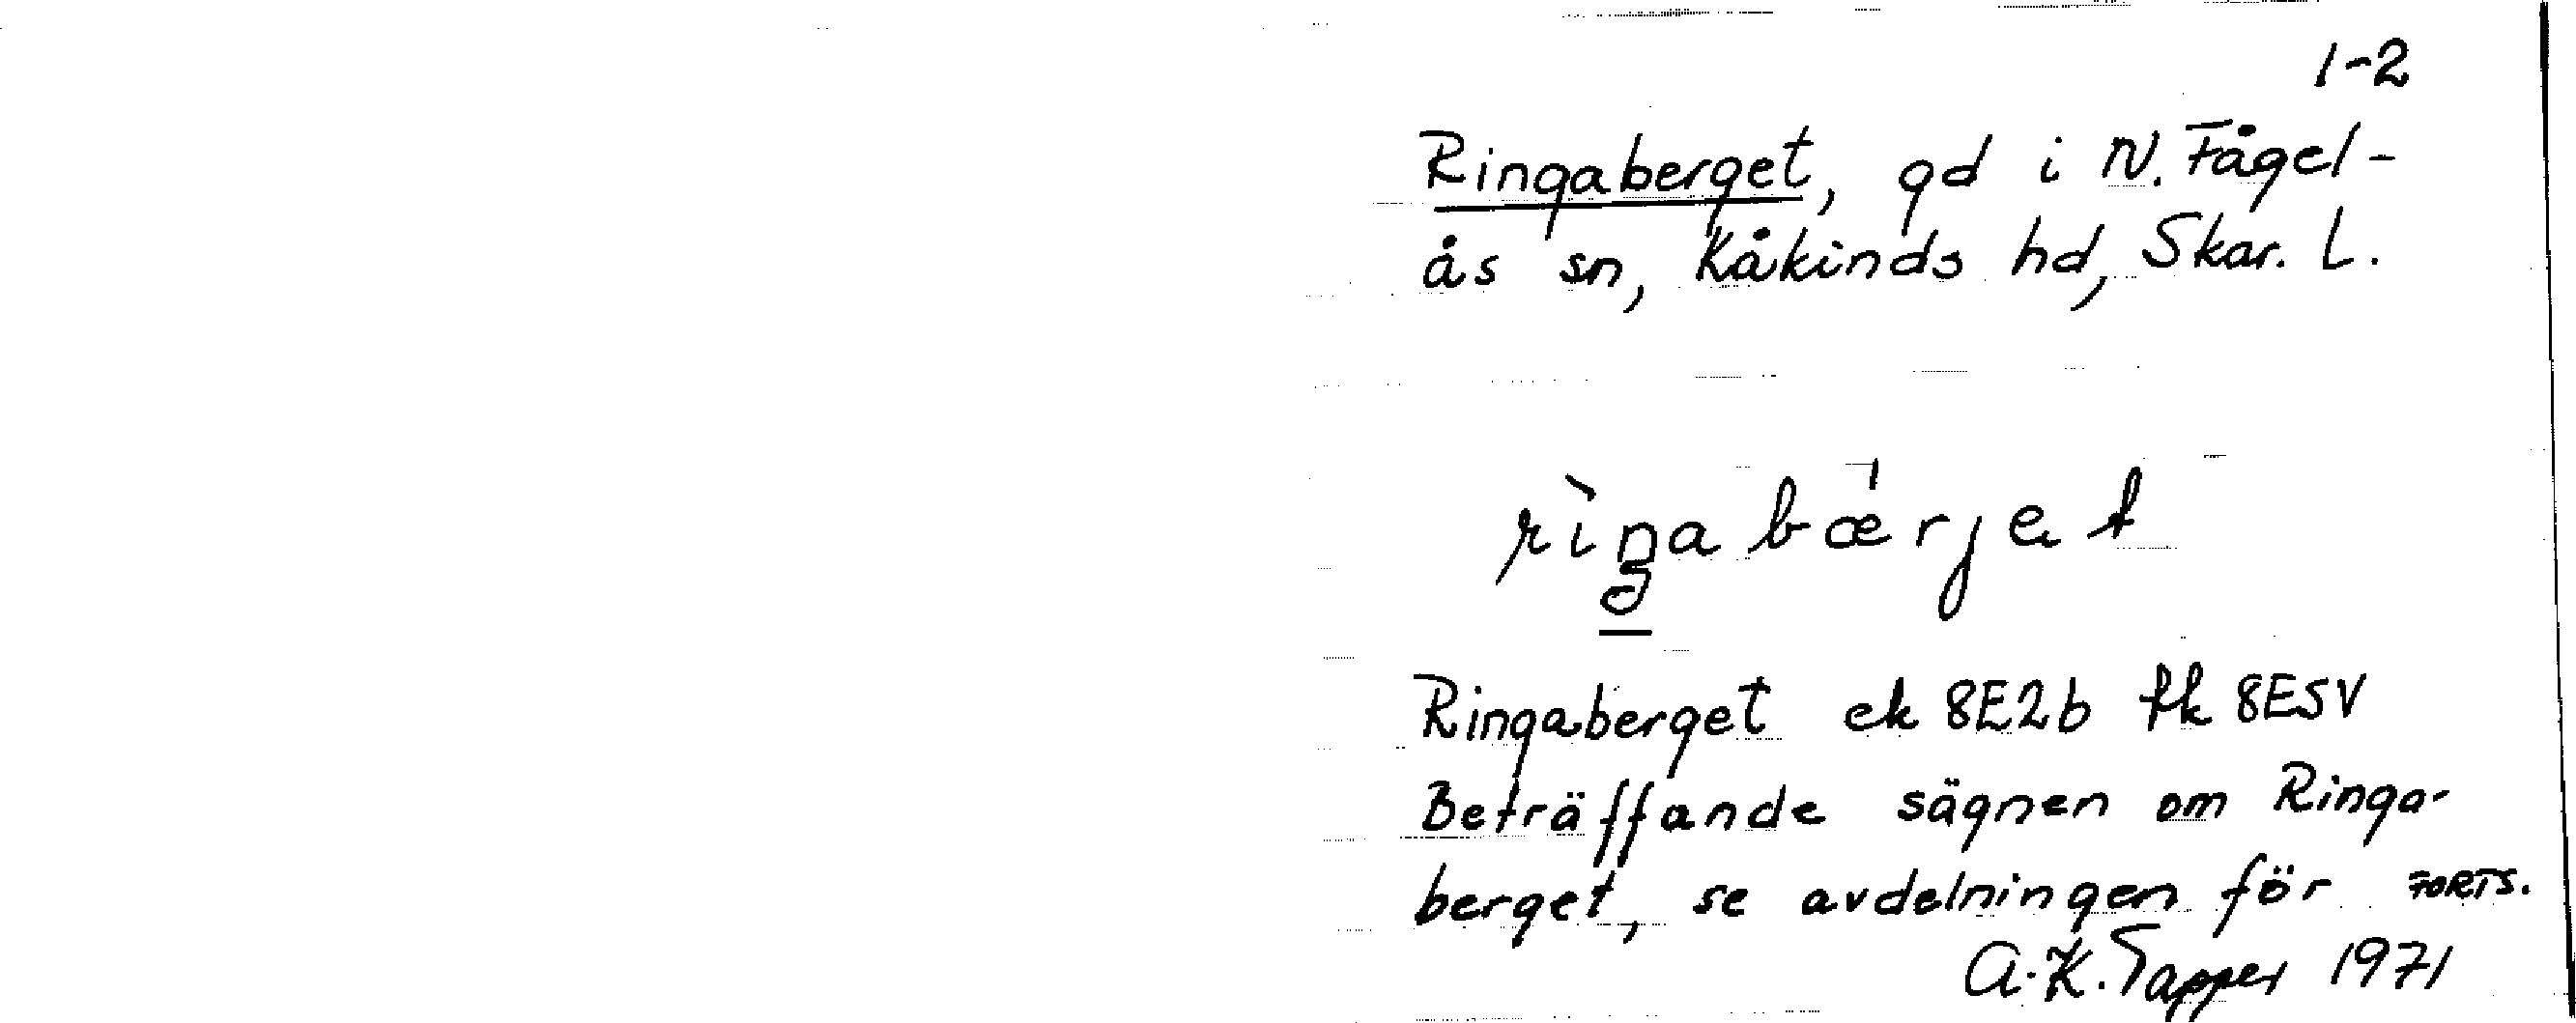 1-2
Ringaberget, gd i N. Fågel-
ås sn, Kåkinds hd, Skar. L.
rìŋabæ̍rjet
Ringaberget ek 8E2b tk 8ESV
Beträffande sägnen om Ringa-
berget, se avdelningen för FORTS.
A.K. Tapper 1971